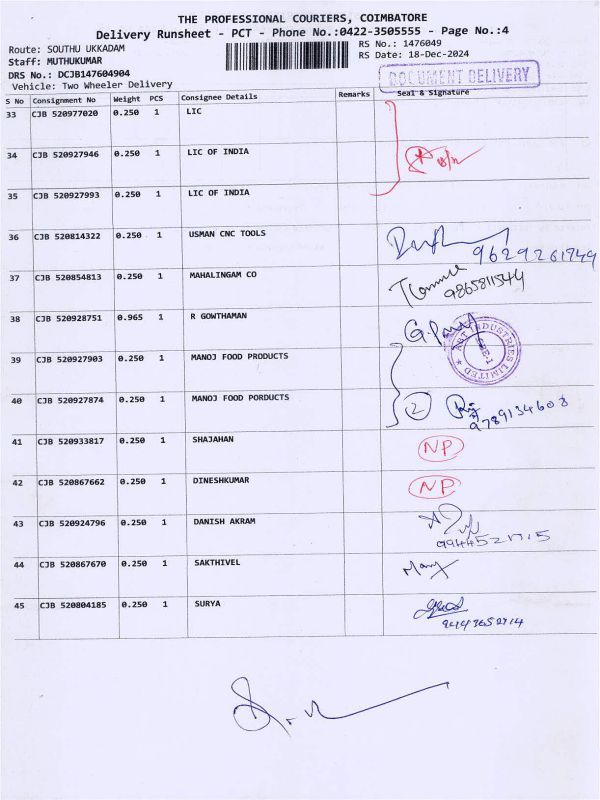 THE PROFESSIONAL COURIERS, COIMBATORE
Delivery Runsheet - PCT - Phone No.:0422-3505555 - Page No.:4
Route: SOUTHU UKKADAM
RS No.: 1476049
Staff: MUTHUKUMAR
RS Date: 18-Dec-2024
DRS No.: DCJB147604904
DOCUMENT DELIVERY
Vehicle: Two Wheeler Delivery
S No Consignment No Weight PCS Consignee Details Remarks Seal & Signature
33 CJB 520977020 0.250 1 LIC
34 CJB 520927946 0.250 1 LIC OF INDIA
35 CJB 520927993 0.250 1 LIC OF INDIA
36 CJB 520814322 0.250 1 USMAN CNC TOOLS
9629261749
37 CJB 520854813 0.250 1 MAHALINGAM CO
9865811544
38 CJB 520928751 0.965 1 R GOWTHAMAN
INDUSTRIES LIMITED
39 CJB 520927903 0.250 1 MANOJ FOOD PRODUCTS
40 CJB 520927874 0.250 1 MANOJ FOOD PORDUCTS 2
9789134608
41 CJB 520933817 0.250 1 SHAJAHAN NP
42 CJB 520867662 0.250 1 DINESHKUMAR NP
43 CJB 520924796 0.250 1 DANISH AKRAM
44 CJB 520867670 0.250 1 SAKTHIVEL
45 CJB 520804185 0.250 1 SURYA